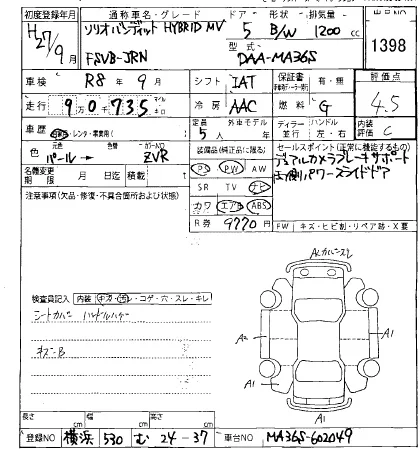 初度登録年月 通称車名・グレード ドア 形状 排気量 出品NO
H27/9月 ソリオバンディット HYBRID MV 5 B/W 1200cc 1398
型式
FSVB-JRN DAA-MA36S
車検 R8年9月 シフト IAT 保証書 有・無 評価点
走行 9万0千735 冷房 AAC 燃料 G 4.5
車歴 レンタ・業務用( ) 定員 5人 外車モデル 年 ディーラー 並行 ハンドル 左・右 内装評価 C
色 元色 パール→ 色替 カラーNO ZVR
装備品(純正品に限る) セールスポイント(正常に機能するもの)
PS PW AW デュアルカメラブレーキサポート
名義変更期限 月 日迄 積載 t SR TV ナビ 両側パワースライドドア
注意事項(欠品・修復・不具合箇所および状態) カワ エアB ABS
R券 9770円 FW キズ・ヒビ割・リペア跡・X要
検査員記入 内装 キカ・汚レ・コゲ・穴・スレ・キレ
シートカバー ハンドルカバー
キズ・B
A2 A1 A1 A1
長さ cm 幅 cm 高さ cm
登録NO 横浜 530 む 24-37 車台NO MA36S-602049